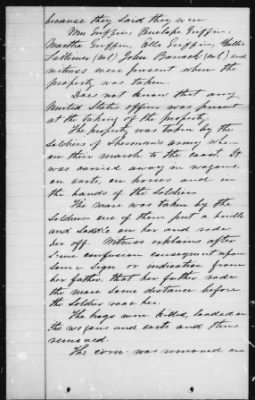 because they said they were.
Wm Griffin, Penelope Griffin,
Martha Griffin, Ella Griffin,
(col) John Barnes (col) and
witness were present when the
property was taken.
Does not know that any
United States officer was present
at the taking of the property.
The property was taken by the
soldiers of Sherman's army when
on their march to the coast. It
was carried away in wagons,
in carts, on horses and in
the hands of the soldiers.
The mare was taken by the
soldiers one of them put a bridle
and saddle on her and rode
her off. Witness explains after
some confusion consequent upon
some sign or indication from
her father, that her father rode
the mare some distance before
the soldier rode her.
The hogs were killed, loaded on
the wagons and carts and then
removed.
The corn was removed in